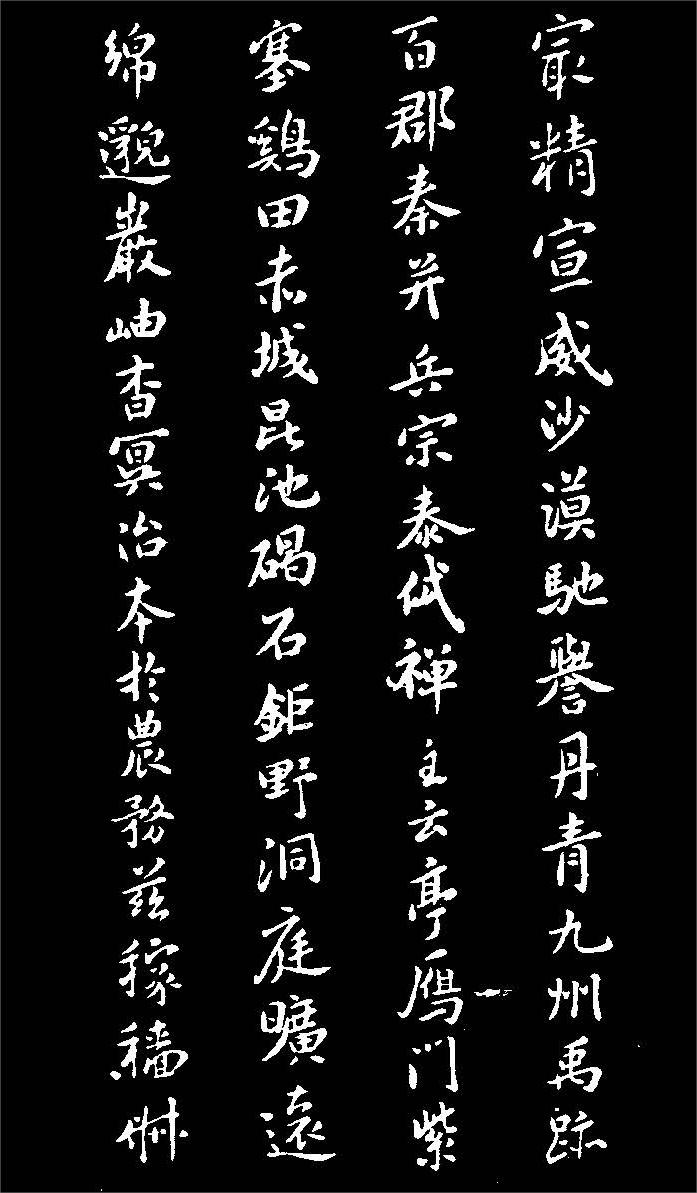 寂精宣威沙漠馳譽丹青九州禹跡
百郡秦并兵宗泰岱禪主云亭鴈門紫
塞鷄田赤城昆池碣石鉅野洞庭曠遠
綿邈巖岫杳冥治本於農務茲稼穡俶